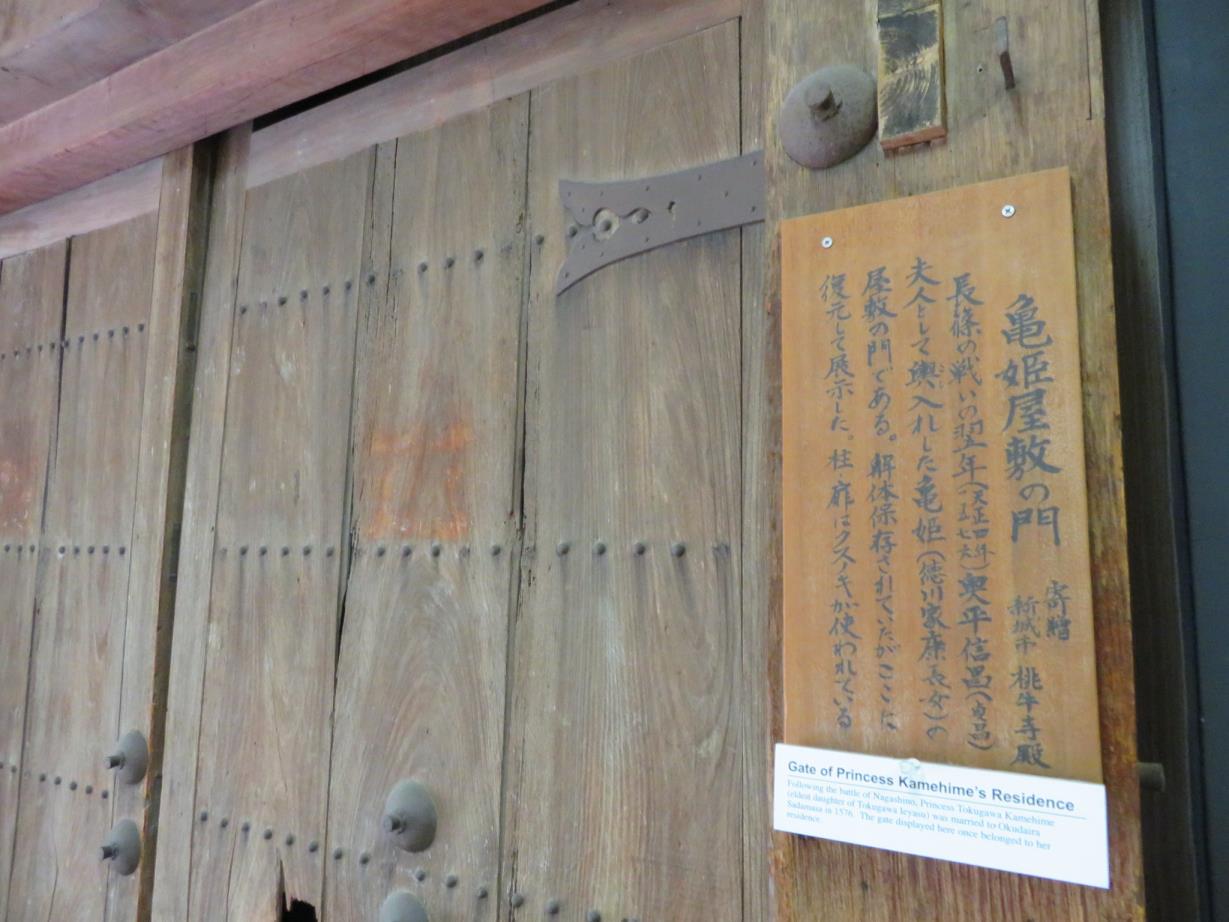 亀姫屋敷の門
寄贈
新城市 桃牛寺殿
長篠の戦いの翌年(天正四年一五七六)奥平信昌(貞昌)
夫人として輿入れした亀姫(徳川家康長女)の
屋敷の門である。解体保存されていたがここに
復元して展示した。柱・扉はクスノキが使われている
Gate of Princess Kamehime's Residence
Following the battle of Nagashino, Princess Tokugawa Kamehime
(eldest daughter of Tokugawa Ieyasu) was married to Okudaira
Sadamasa in 1576. The gate displayed here once belonged to her
residence.